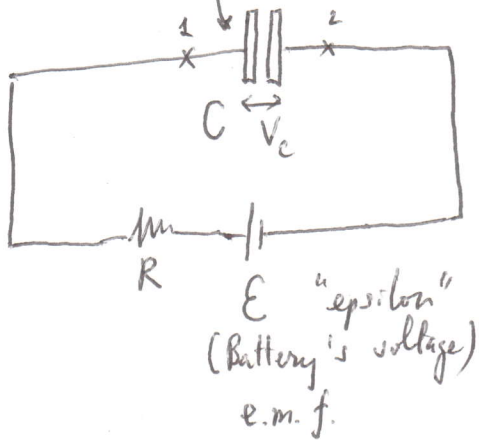 1 2
C V_c
R
ε "epsilon"
(Battery's voltage)
e.m.f.